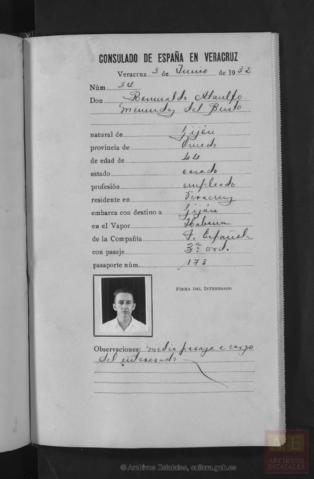 CONSULADO DE ESPAÑA EN VERACRUZ
Veracruz 3 de Junio de 1932
Núm 34
Don Romualdo Ataulfo
Menendez del Busto
natural de Gijón
provincia de Oviedo
de edad de 44
estado casado
profesión empleado
residente en Veracruz
embarca con destino a Gijón
en el Vapor Habana
de la Compañía T. Española
con pasaje 3ª ord.
pasaporte núm. 173
FIRMA DEL INTERESADO
Observaciones: medio pasaje a cargo
del interesado
© Archivos Estatales, cultura.gob.es
ARCHIVOS
ESTATALES